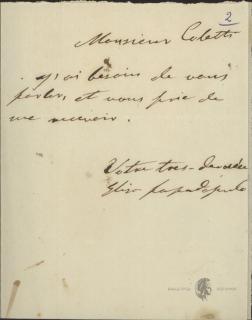 2
Monsieur Coletti
J'ai besoin de vous
parler, et vous prie de
me recevoir.
Votre très-dévouée
papadopulo